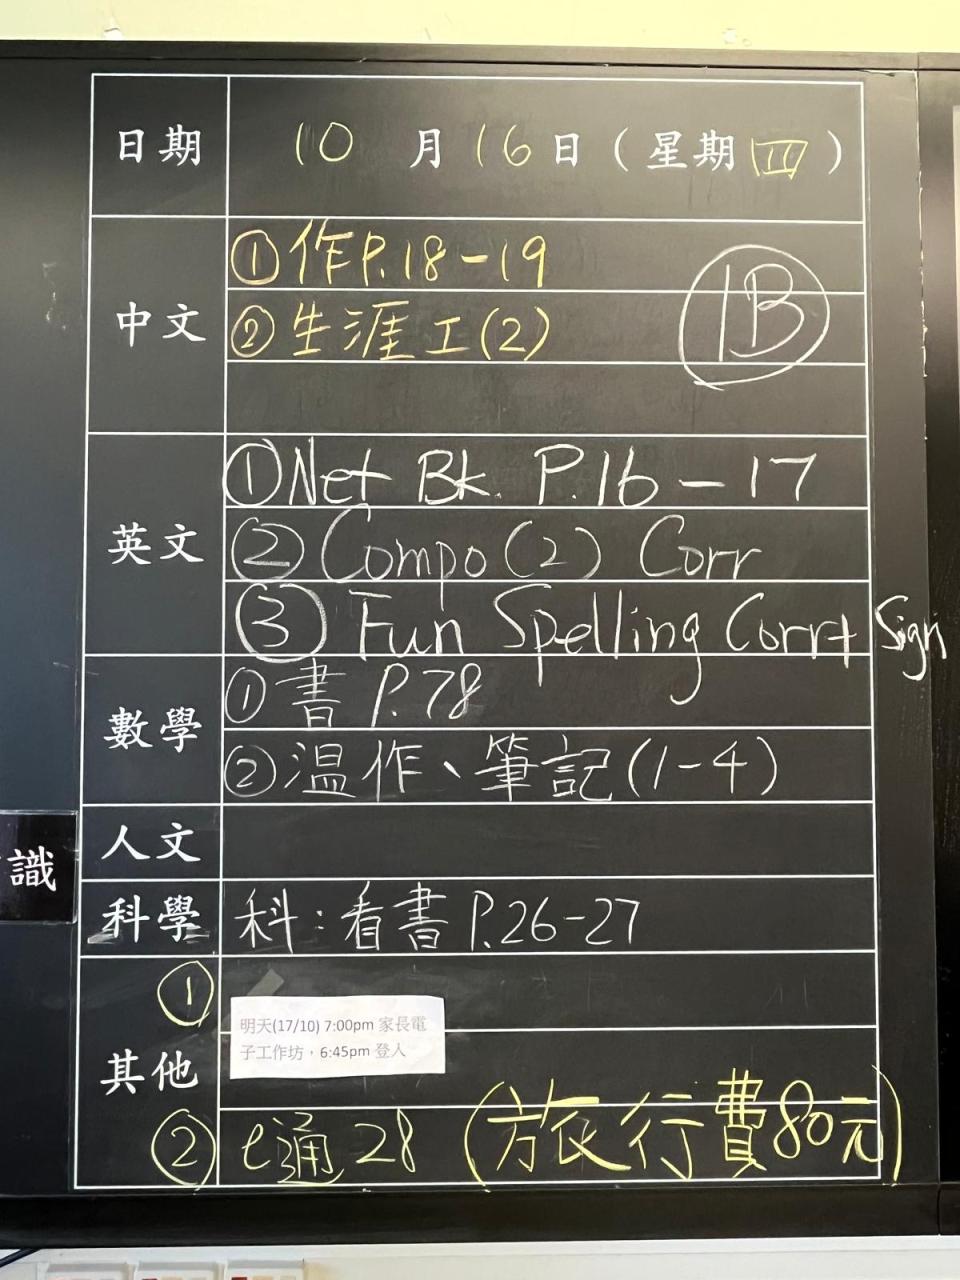 日期 10 月 16 日 ( 星期 四 )
中文
①作P.18-19
②生涯工(2)
1B
英文
①Net Bk. P.16-17
②Compo(2) Corr
③Fun Spelling Corr+ Sign
數學
①書 P.78
②温作、筆記(1-4)
人文
識
科學 科:看書P.26-27
其他
①
明天(17/10) 7:00pm 家長電
子工作坊,6:45pm 登入
② e通28 (旅行費80元)